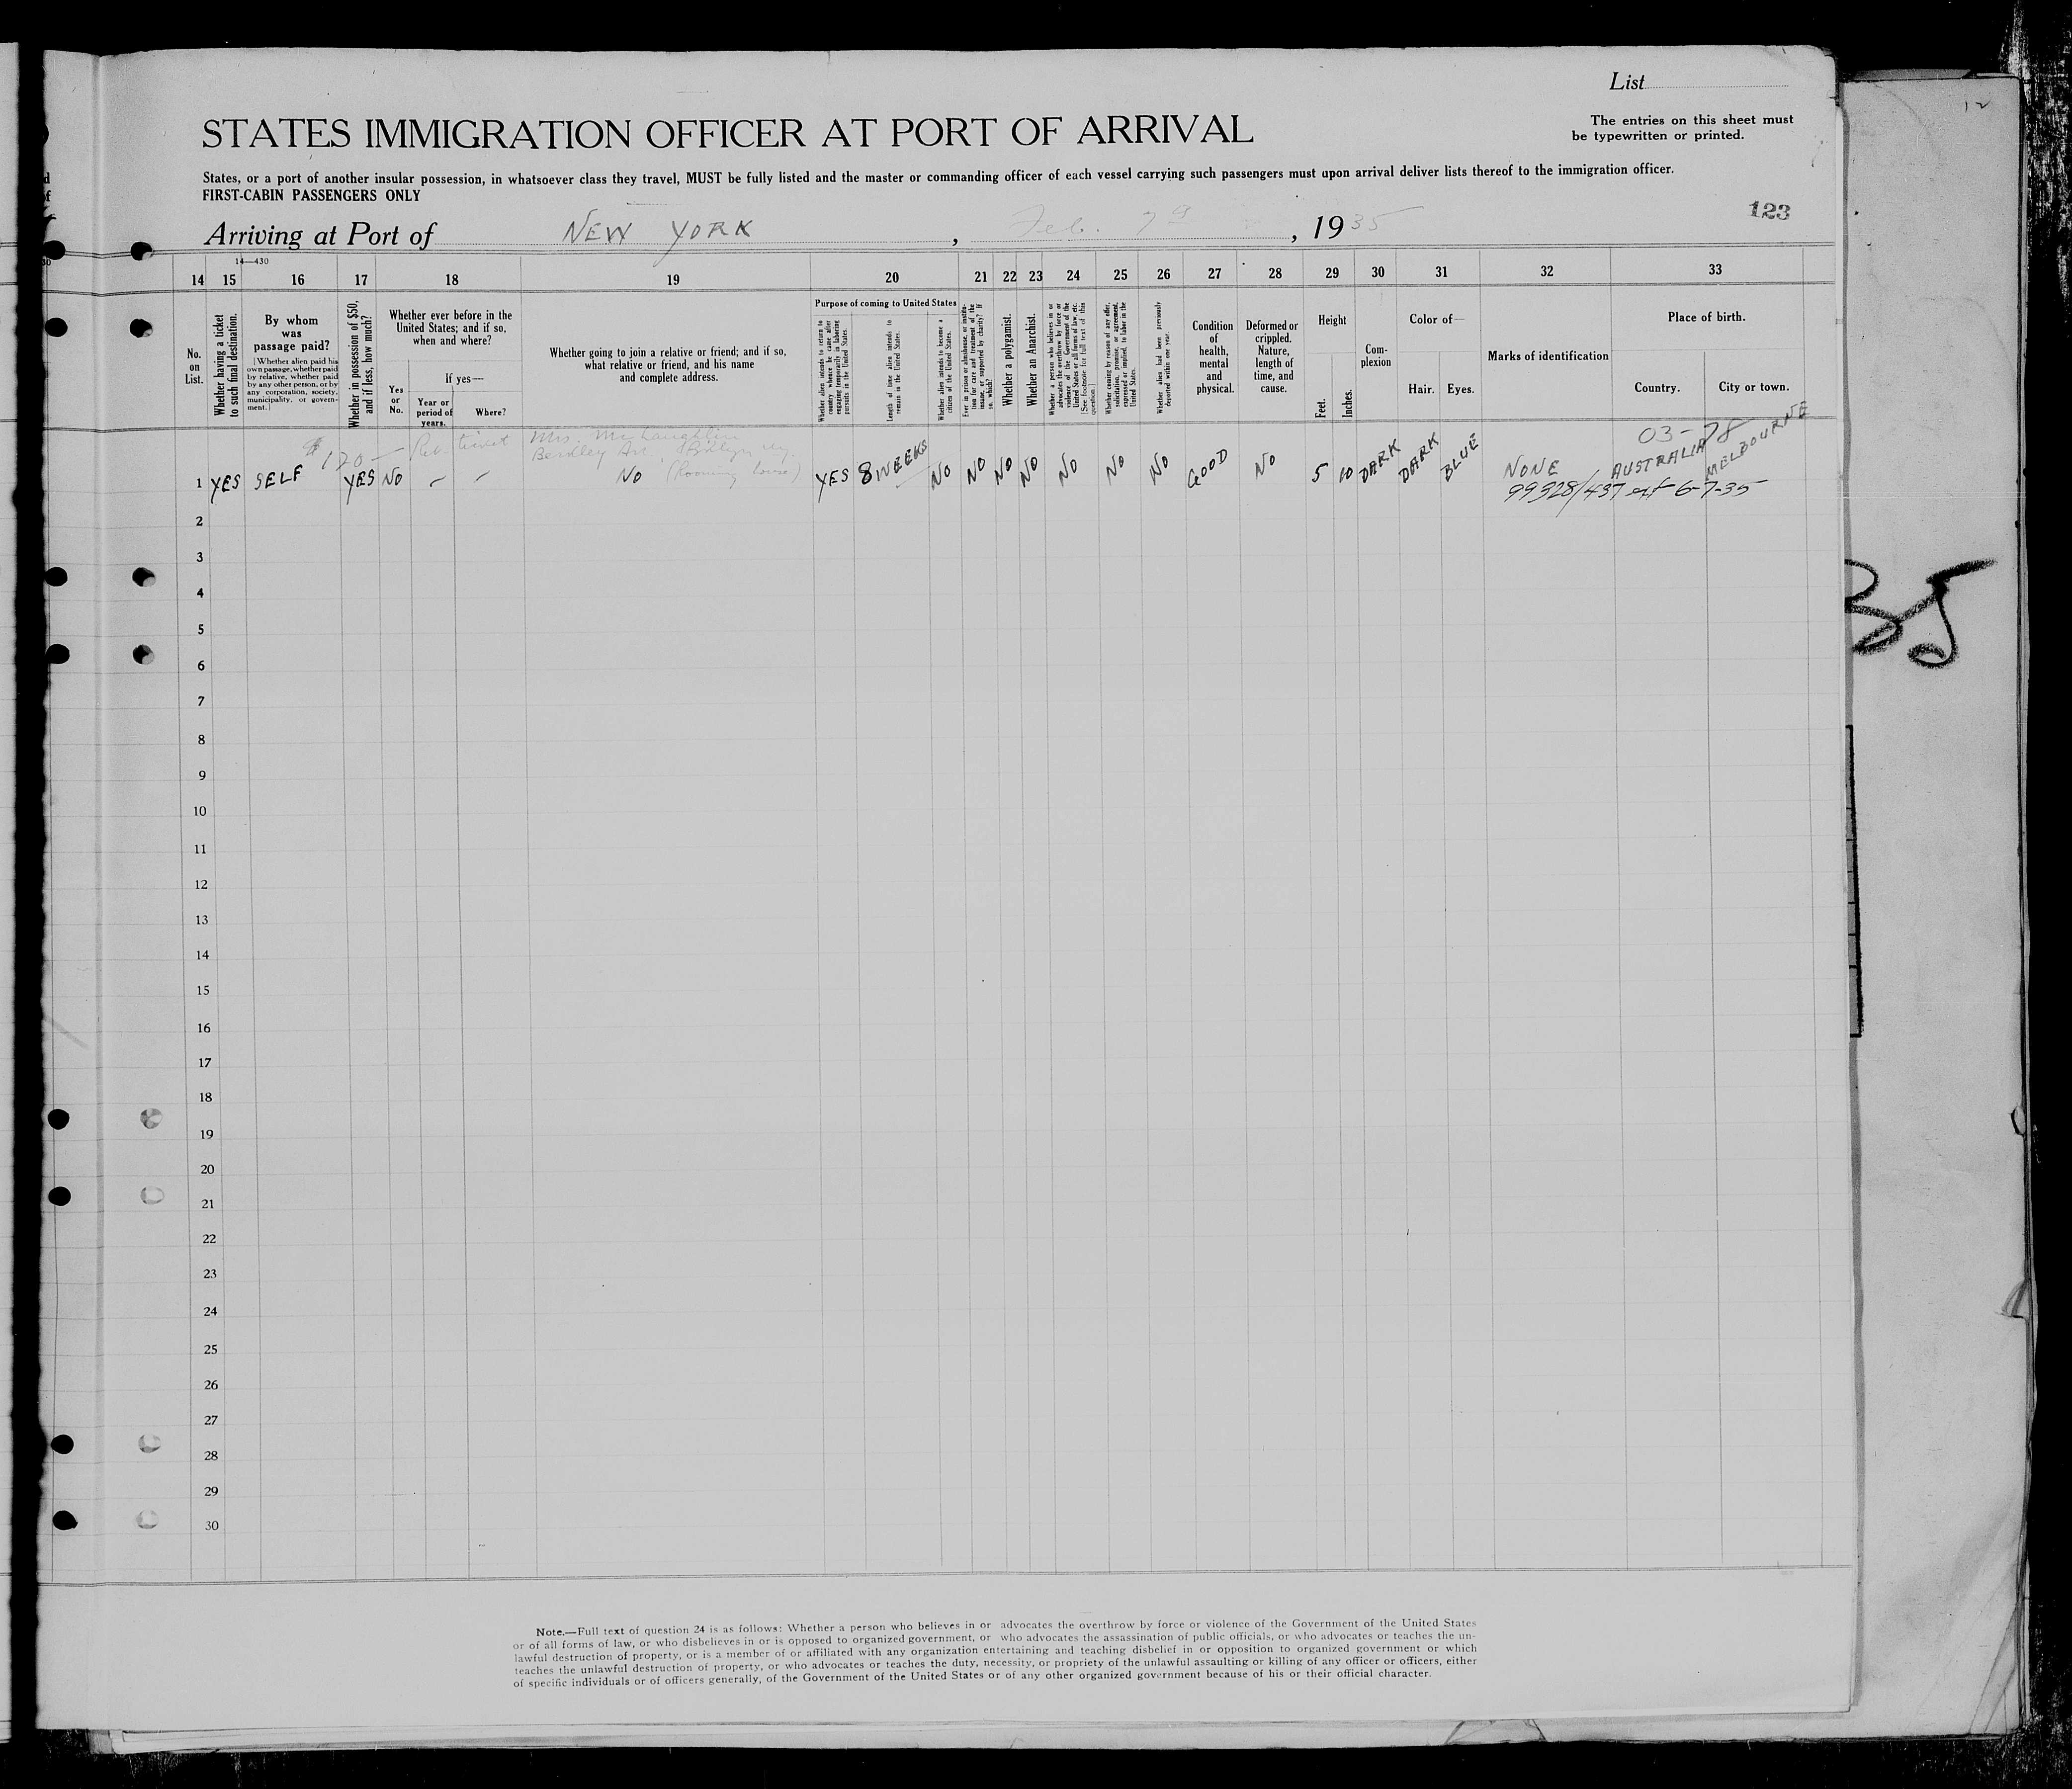 List
STATES IMMIGRATION OFFICER AT PORT OF ARRIVAL
The entries on this sheet must
be typewritten or printed.
States, or a port of another insular possession, in whatsoever class they travel, MUST be fully listed and the master or commanding officer of each vessel carrying such passengers must upon arrival deliver lists thereof to the immigration officer.
FIRST-CABIN PASSENGERS ONLY
123
Arriving at Port of NEW YORK, Feb. 7, 1935
14—430
14 15 16 17 18 19 20 21 22 23 24 25 26 27 28 29 30 31 32 33
No.
on
List.
Whether having a ticket
to such final destination.
By whom
was
passage paid?
[Whether alien paid his
own passage, whether paid
by relative, whether paid
by any other person, or by
any corporation, society,
municipality, or govern-
ment.]
Whether in possession of $50,
and if less, how much?
Whether ever before in the
United States; and if so,
when and where?
Yes
or
No.
If yes—
Year or
period of
years.
Where?
Whether going to join a relative or friend; and if so,
what relative or friend, and his name
and complete address.
Purpose of coming to United States
Whether alien intends to return to
country whence he came after
engaging temporarily in laboring
pursuits in the United States.
Length of time alien intends to
remain in the United States.
Whether alien intends to become a
citizen of the United States.
Ever in prison or almshouse, or institu-
tion for care and treatment of the
insane, or supported by charity? If
so, which?
Whether a polygamist.
Whether an Anarchist.
Whether a person who believes in or
advocates the overthrow by force or
violence of the Government of the
United States or all forms of law, etc.
[See footnote for full text of this
question.]
Whether coming by reason of any offer,
solicitation, promise, or agreement,
expressed or implied, to labor in the
United States.
Whether alien had been previously
deported within one year.
Condition
of
health,
mental
and
physical.
Deformed or
crippled.
Nature,
length of
time, and
cause.
Height
Feet.
Inches.
Com-
plexion
Color of—
Hair.
Eyes.
Marks of identification
Place of birth.
Country.
City or town.
$120— Mrs. McLaughlin 03-78
1 YES SELF YES NO - - NO (Rooming house) YES 8 WEEKS NO NO NO NO NO NO NO GOOD NO 5 10 DARK DARK BLUE NONE AUSTRALIA MELBOURNE
99328/437 6-7-35
2
3
4
5
6
7
8
9
10
11
12
13
14
15
16
17
18
19
20
21
22
23
24
25
26
27
28
29
30
35
12
Note.—Full text of question 24 is as follows: Whether a person who believes in or advocates the overthrow by force or violence of the Government of the United States
or of all forms of law, or who disbelieves in or is opposed to organized government, or who advocates the assassination of public officials, or who advocates or teaches the un-
lawful destruction of property, or is a member of or affiliated with any organization entertaining and teaching disbelief in or opposition to organized government or which
teaches the unlawful destruction of property, or who advocates or teaches the duty, necessity, or propriety of the unlawful assaulting or killing of any officer or officers, either
of specific individuals or of officers generally, of the Government of the United States or of any other organized government because of his or their official character.